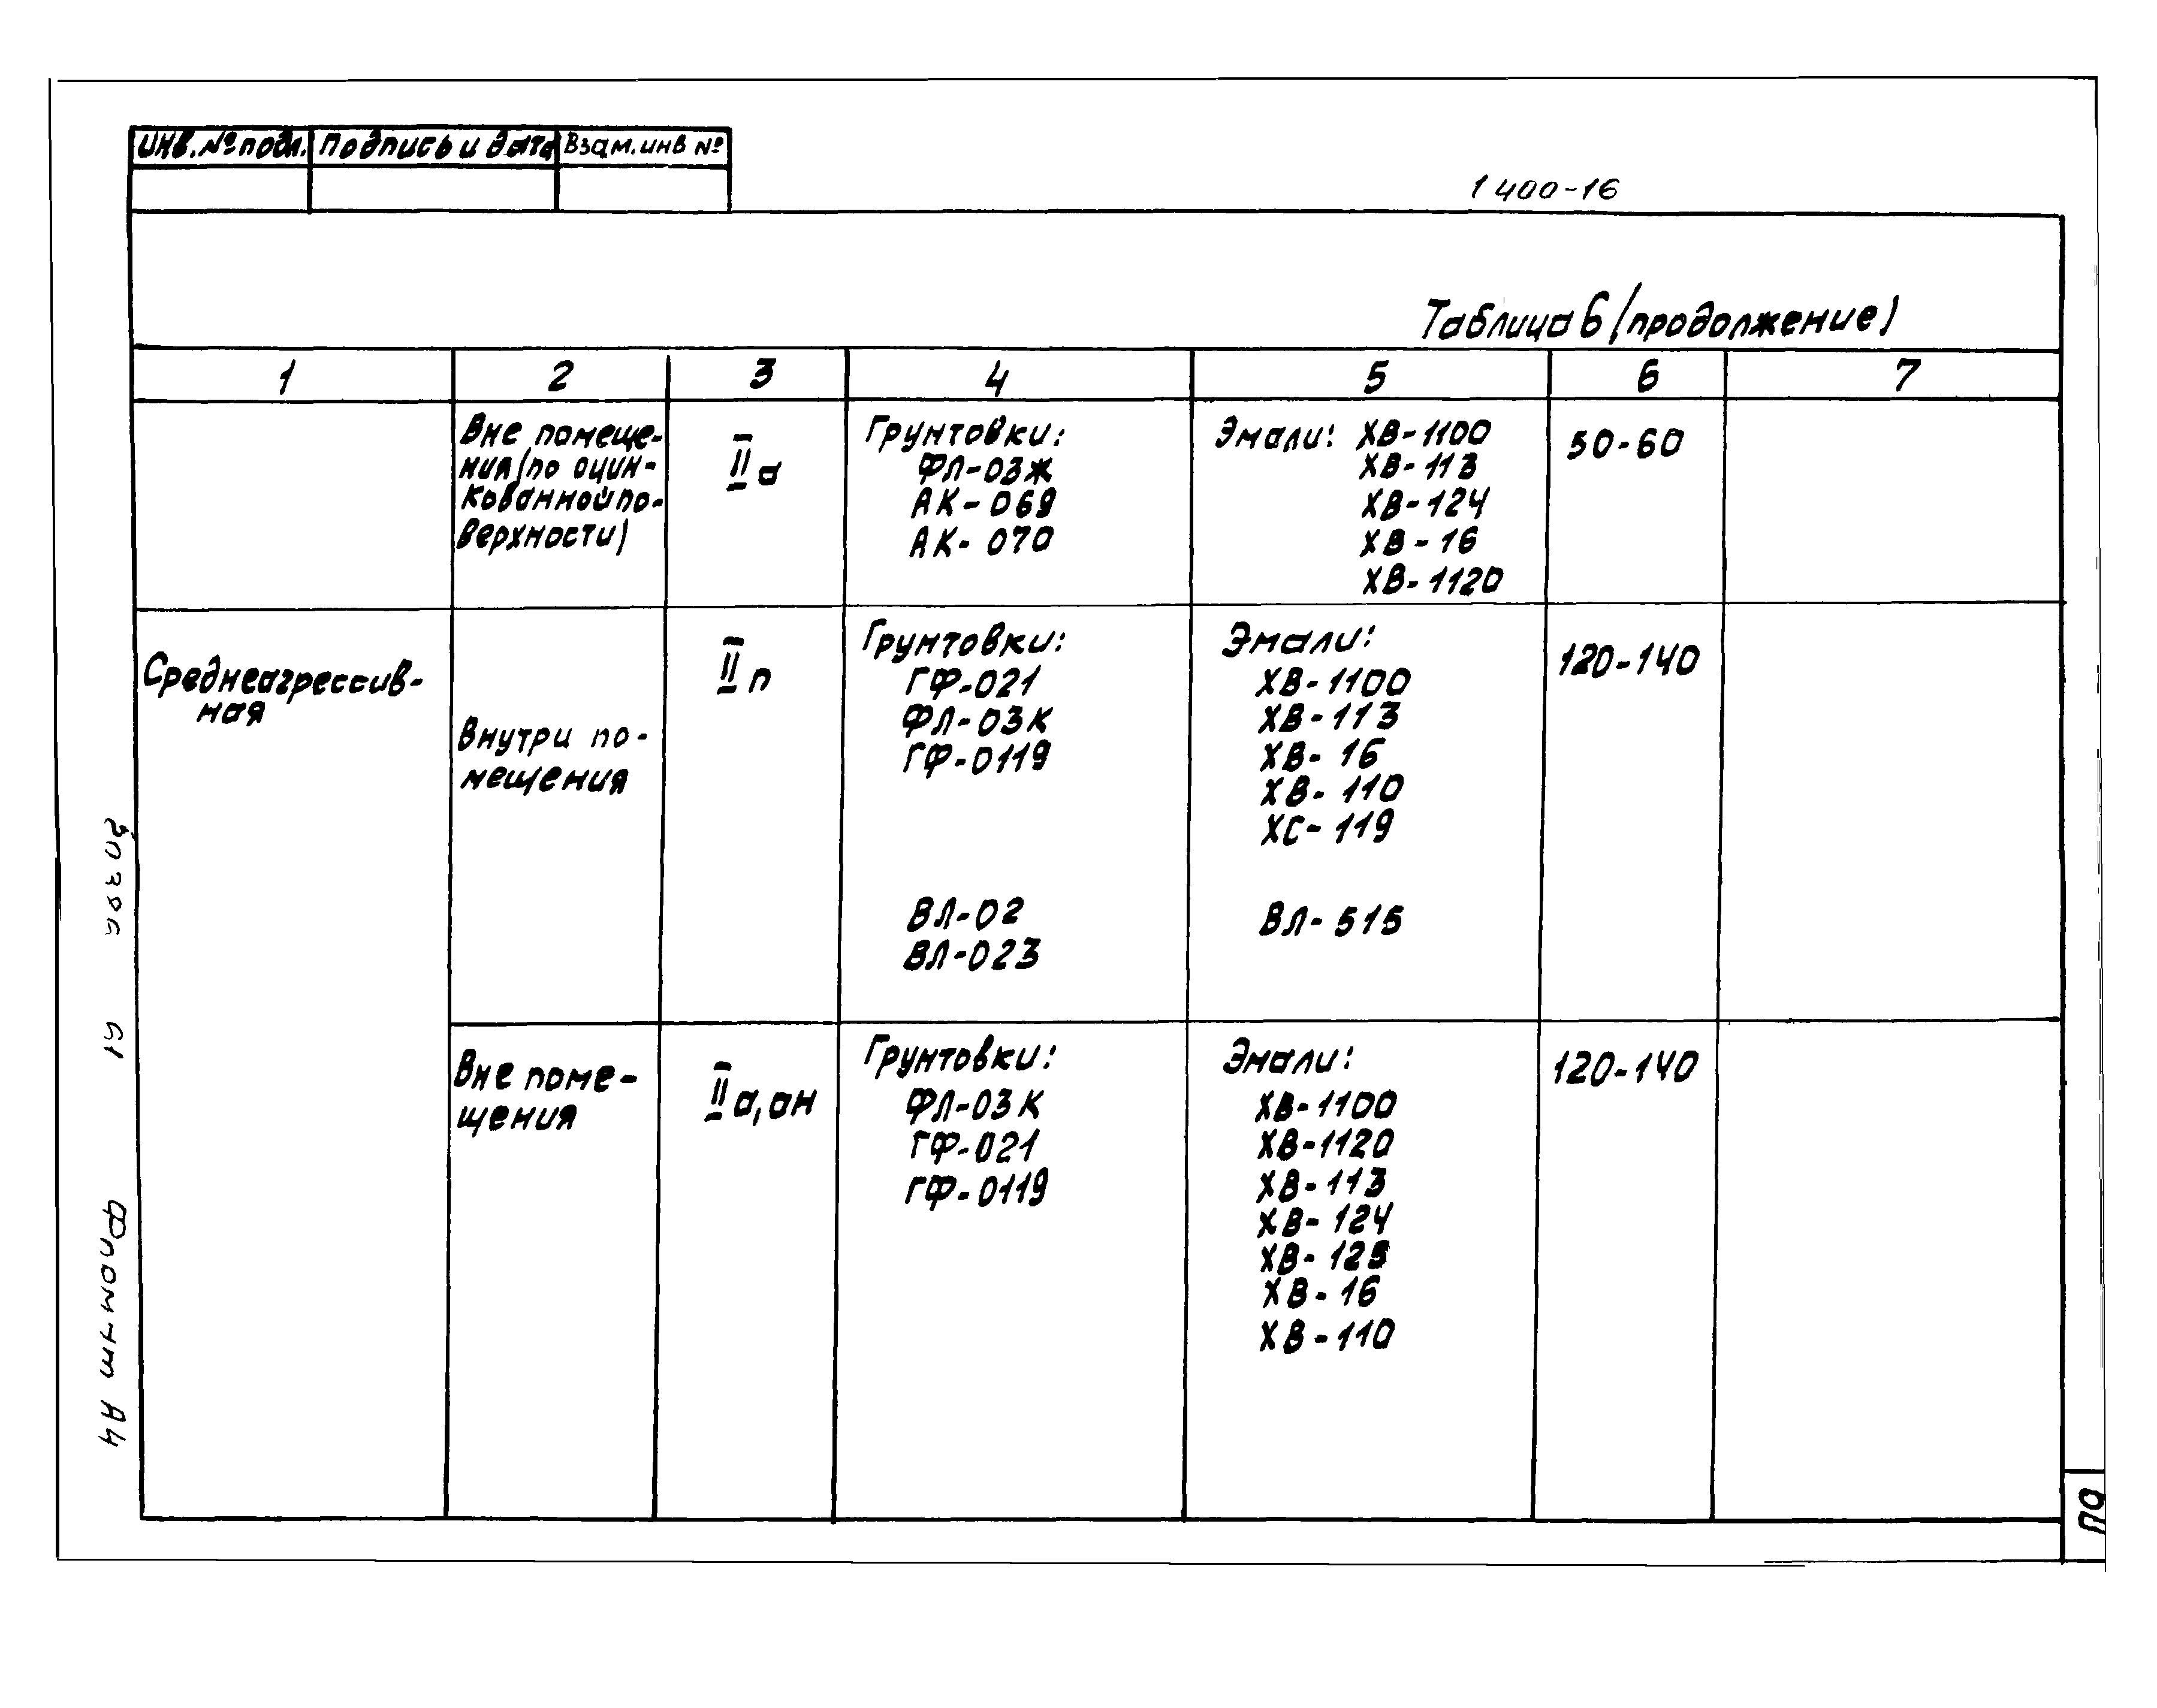 Инв. № подл. Подпись и дата Взам. инв №
1 400-16
Таблица 6 (продолжение)
1 2 3 4 5 6 7
Вне помеще-
ния (по оцин-
кованной по-
верхности)
II а
Грунтовки:
ФЛ-03Ж
АК-069
АК-070
Эмали: ХВ-1100
ХВ-113
ХВ-124
ХВ-16
ХВ-1120
50-60
Среднеагрессив-
ная
Внутри по-
мещения
II п
Грунтовки:
ГФ-021
ФЛ-03К
ГФ-0119
ВЛ-02
ВЛ-023
Эмали:
ХВ-1100
ХВ-113
ХВ-16
ХВ-110
ХС-119
ВЛ-515
120-140
Вне поме-
щения
II а, ан
Грунтовки:
ФЛ-03К
ГФ-021
ГФ-0119
Эмали:
ХВ-1100
ХВ-1120
ХВ-113
ХВ-124
ХВ-125
ХВ-16
ХВ-110
120-140
19
Формат А4